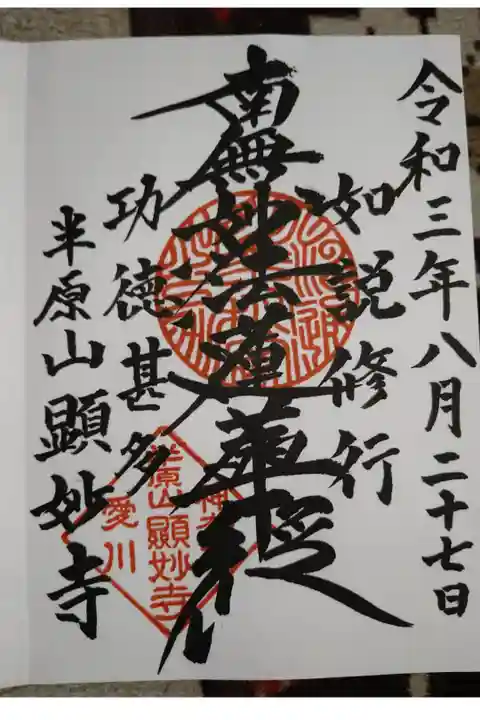 令和三年八月二十七日
如説修行
南無妙法蓮華経
功徳甚多
半原山顕妙寺
半原山顯妙寺
愛川